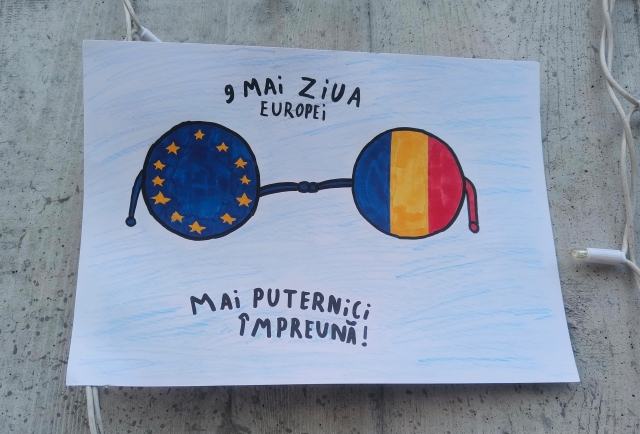 9 MAi ZiUA
EUROPEi
MAi PUTERNiCi
ÎMPREUNĂ!